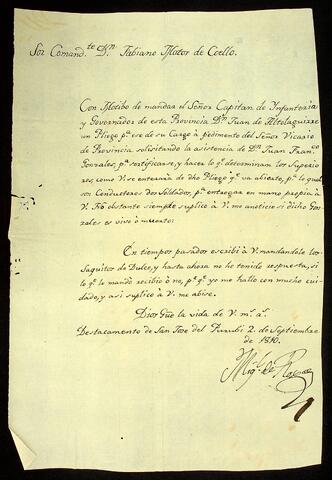 Sor Comand.te D.n Fabiano Mator de Coello.
Con Motibo de mandar el Señor Capitan de Infanteria
y Governador de esta Provincia D.n Juan de Altolaguirre
un Pliego p.a ese de su Cargo à pedimento del Señor Vicario
de Provincia solicitando la asistencia de D.n Juan Fran.co
Gonzales, p.a fortificarse, y hacer lo q.e determinan los Superio
res, como V. se enterarà de dho Pliego q.e va abierto, p.a lo qual
son Conductores dos Soldados, p.a entregar en mano propia à
V. No obstante siempre suplico à V. me anoticie si dicho Gon
zales es vivo ò muerto:
En tiempos pasados escribi à V. mandandole los
Saquitos de Dulce, y hasta ahora no he tenido respuesta, si
lo q.e le mando recibiò ò no, p.r q.e yo me hallo con mucho cui
dado, y asi suplico à V. me abise.
Dios Güe la vida de V. m.s a.s
Destacamento de San Jose del 2. de Septiembre
de 1810.
Mig.l de